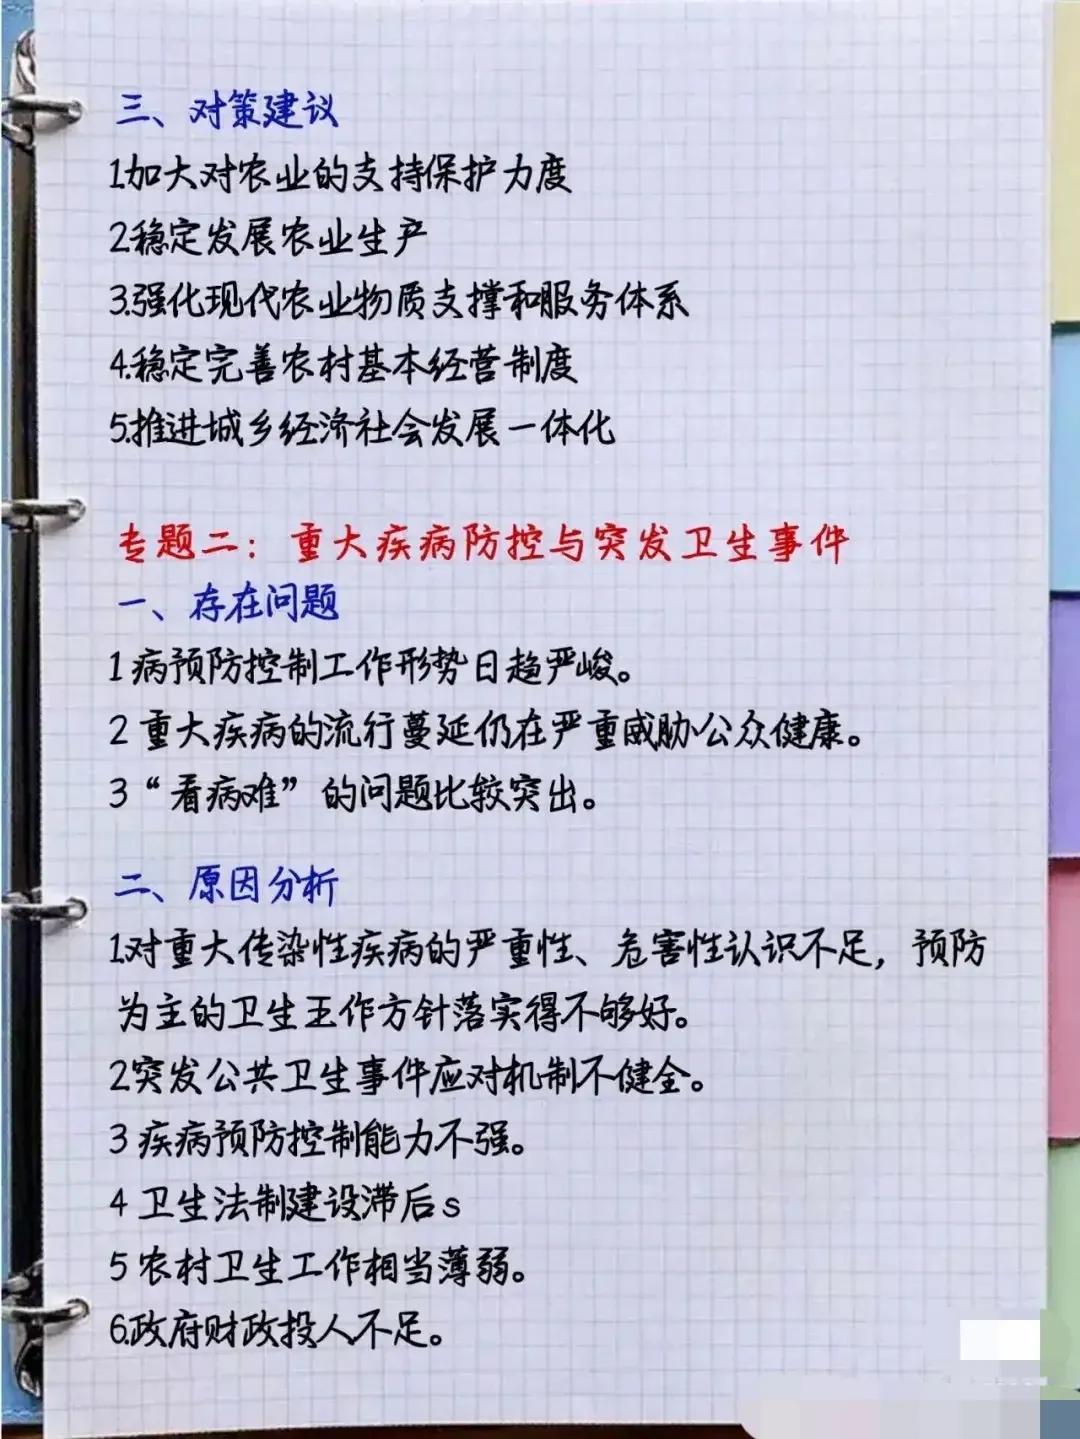 三、对策建议
1.加大对农业的支持保护力度
2稳定发展农业生产
3.强化现代农业物质支撑和服务体系
4.稳定完善农村基本经营制度
5.推进城乡经济社会发展一体化
专题二：重大疾病防控与突发卫生事件
一、存在问题
1病预防控制工作形势日趋严峻。
2 重大疾病的流行蔓延仍在严重威胁公众健康。
3“看病难”的问题比较突出。
二、原因分析
1.对重大传染性疾病的严重性、危害性认识不足，预防
为主的卫生王作方针落实得不够好。
2突发公共卫生事件应对机制不健全。
3 疾病预防控制能力不强。
4 卫生法制建设滞后s
5 农村卫生工作相当薄弱。
6.政府财政投人不足。